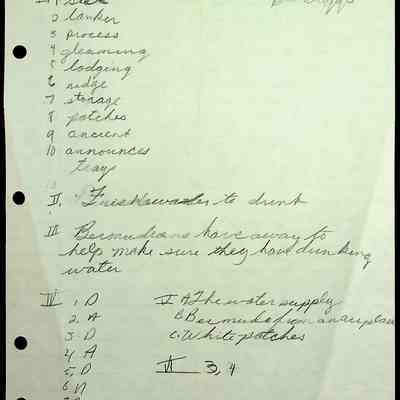 2 tanker
3 process
4 gleaming
5 lodging
6 ridge
7 storage
8 patches
9 ancient
10 announces
trays
II. Freshwater to drink
III Bermudians have away to
help make sure they have drinking
water
IV 1. D
2. A
3. D
4 A
5. D
6. D
V A The water supply
B. Bermuda from an airplane
C. White patches
VI 3, 4